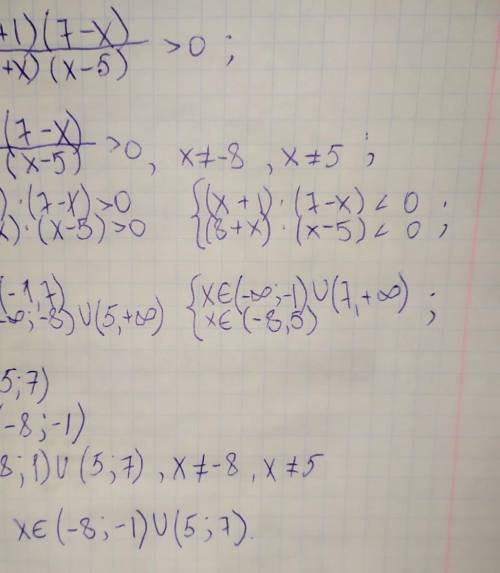 +1)(7-x)
+x)(x-5) >0 ;
(7-x)
(x-5) >0, x≠-8, x≠5 ;
)·(7-x)>0 {(x+1)·(7-x)<0 ;
x)·(x-5)>0 (8+x)·(x-5)<0 ;
(-1,7) {x∈(-∞;-1)∪(7,+∞)
∞;-8)∪(5,+∞) x∈(-8,5) ;
5;7)
(-8;-1)
8;1)∪(5;7), x≠-8, x≠5
x∈(-8;-1)∪(5;7).